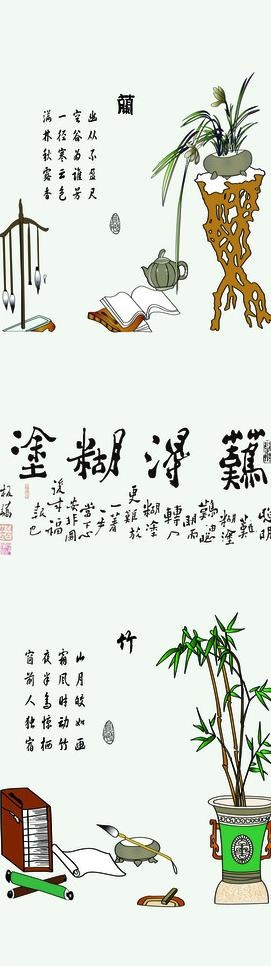 蘭
幽从不盈尺
空谷为谁芳
一径寒云色
满林秋露香
難得糊塗
聰明
難
糊塗
難由聰
明而
轉入
糊塗
更難放
一著
一步
當下心
安非圖
後来福
报也
板橋
竹
山月皎如画
霜风时动竹
夜半鸟惊栖
窗前人独宿